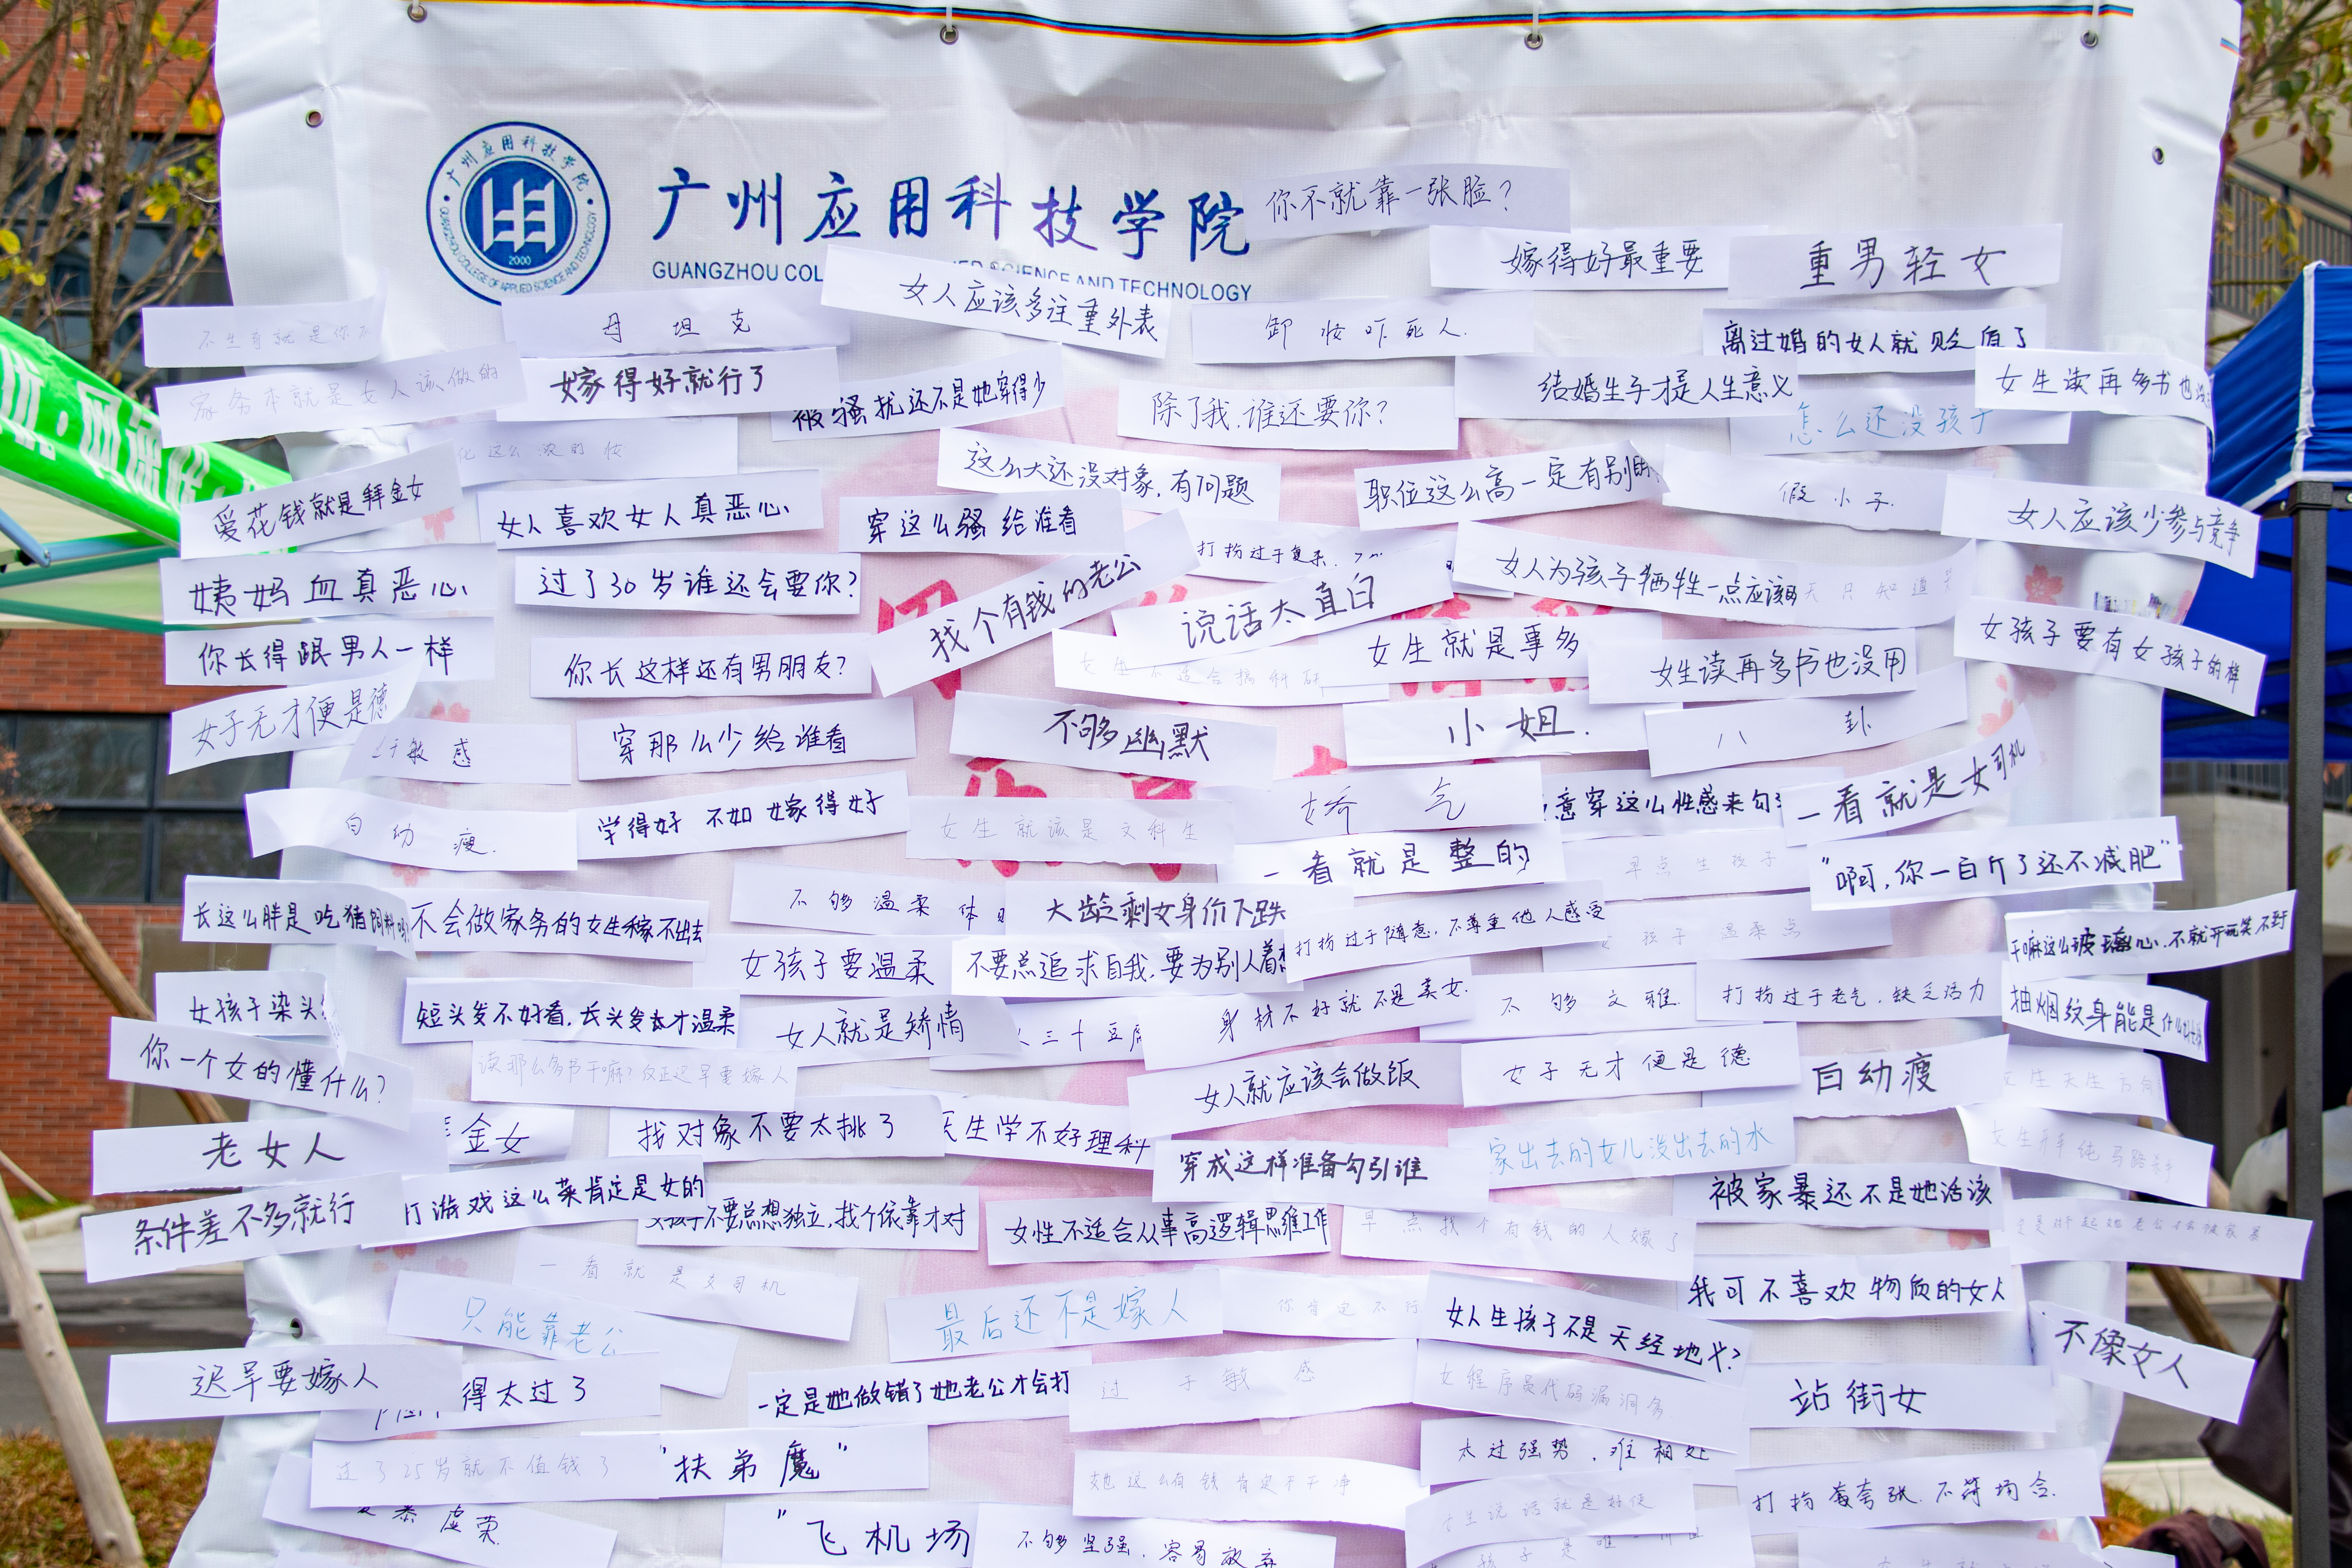 广州应用科技学院
GUANGZHOU COLLEGE OF APPLIED SCIENCE AND TECHNOLOGY
2000
广州应用科技学院
GUANGZHOU COL
SCIENCE AND TECHNOLOGY
你不就靠一张脸？
嫁得好最重要
重男轻女
女人应该多注重外表
不生育就是你不
母坦克
卸妆吓死人.
离过婚的女人就贬值了
家务本就是女人该做的
嫁得好就行了
被骚扰还不是她穿得少
除了我.谁还要你?
结婚生子才是人生意义
女生读再多书也没
怎么还没孩子
化这么浓的妆
这么大还没对象,有问题
职位这么高一定有别的
假小子.
爱花钱就是拜金女
女人喜欢女人真恶心
穿这么骚给谁看
女人应该少参与竞争
打扮过于复杂.
姨妈血真恶心
过了30岁谁还会要你?
找个有钱的老公
说话太直白
女人为孩子牺牲一点应该的
天只知道
你长得跟男人一样
你长这样还有男朋友?
女生不适合搞科研
女生就是事多
女生读再多书也没用
女孩子要有女孩子的样
女子无才便是德
于敏感
穿那么少给谁看
不够幽默
小姐.
八卦
白幼瘦.
学得好 不如嫁得好
女生就该是文科生
娇气
意穿这么性感来勾
一看就是女司机
一看就是整的
早点生孩子
"啊,你一百斤了还不减肥"
长这么胖是吃猪饲料吗
不会做家务的女生稼不出去
不够温柔体
大龄剩女身价下跌
打扮过于随意.不尊重他人感受
孩子温柔点
干嘛这么玻璃心.不就开玩笑.不到
女孩子要温柔
不要总追求自我,要为别人着想
女孩子染头
短头发不好看,长头发才温柔
女人就是矫情
人三十豆腐
身材不好就不是美女.
不够文雅.
打扮过于老气.缺乏活力
抽烟纹身能是什么
你一个女的懂什么?
读那么多书干嘛?反正迟早要嫁人
女人就应该会做饭
女子无才便是德
白幼瘦
女生天生方向
老女人
金女
找对象不要太挑了
天生学不好理科
穿成这样准备勾引谁
家出去的女儿没出去的水
女生开车纯马路杀手
条件差不多就行
打游戏这么菜肯定是女的
女孩子不要总想独立,找个依靠才对
女性不适合从事高逻辑思维工作
早点找个有钱的人嫁了
被家暴还不是她活该
一看就是女司机
只能靠老公
最后还不是嫁人
你肯定不行
女人生孩子不是天经地义?
我可不喜欢物质的女人
不像女人
迟早要嫁人
得太过了
一定是她做错了她老公才会打
过于敏感
女程序员代码漏洞多.
站街女
过了25岁就不值钱了
"扶弟魔"
她这么有钱肯定不干净
太过强势.难相处
爱慕虚荣.
"飞机场
不够坚强.容易放弃
女生说话就是好使
打扮莓夸张.不符场合.